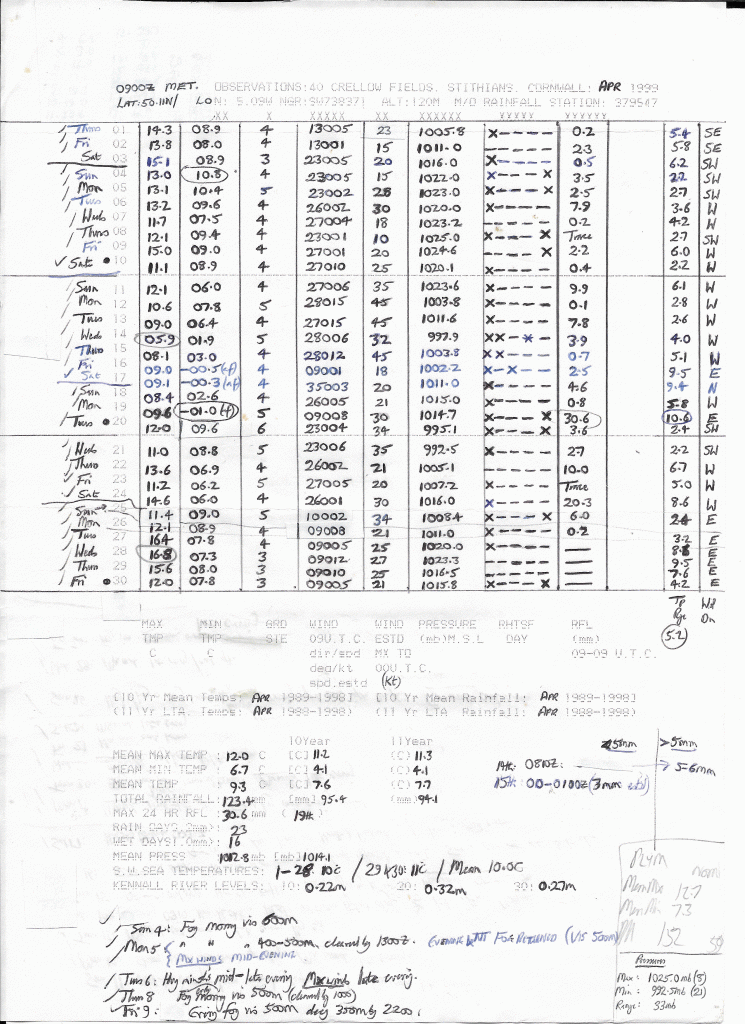 0900Z MET. OBSERVATIONS:40 CRELLOW FIELDS, STITHIANS, CORNWALL: APR 1999
LAT:50.11N/ LON: 5.09W NGR:SW73837) ALT:120M M/O RAINFALL STATION: 379547
XX X XXXXX XX XXXXXX XXXXX XXXXXX
Thurs 01 14.3 08.9 4 13005 23 1005.8 X---- 0.2 5.4 SE
Fri 02 13.8 08.0 4 13001 15 1011.0 ----- 2.3 5.8 SE
Sat 03 15.1 08.9 3 23005 20 1016.0 X---- 0.5 6.2 SW
Sun 04 13.0 10.8 4 23005 15 1022.0 X---X 3.5 2.2 SW
Mon 05 13.1 10.4 5 23002 28 1023.0 X---X 2.5 2.7 SW
Tues 06 13.2 09.6 4 26002 30 1020.0 X---- 7.9 3.6 W
Wed 07 11.7 07.5 4 27004 18 1023.2 ----- 0.2 4.2 W
Thurs 08 12.1 09.4 4 23001 10 1025.0 X---X Trace 2.7 SW
Fri 09 15.0 09.0 4 27001 20 1024.6 ----X 2.2 6.0 W
✓ Sat • 10 11.1 08.9 4 27010 25 1020.1 X---- 0.4 2.2 W
Sun 11 12.1 06.0 4 27006 35 1023.6 X---- 9.9 6.1 W
Mon 12 10.6 07.8 5 28015 45 1003.8 X---- 0.1 2.8 W
Tues 13 09.0 06.4 4 27015 45 1011.6 X---- 7.8 2.6 W
Wed 14 05.9 01.9 5 28006 32 997.9 XX-X- 3.9 4.0 W
Thurs 15 08.1 03.0 4 28012 45 1003.8 XX--- 0.7 5.1 W
Fri 16 09.0 -00.5(af) 4 09001 18 1002.2 X-X-- 2.5 9.5 E
✓ Sat 17 09.1 -00.3(af) 4 35003 20 1011.0 X---- 4.6 9.4 N
Sun 18 08.4 02.6 4 26005 21 1015.0 X---- 0.8 5.8 W
Mon 19 09.6 -01.0(f) 5 09008 30 1014.7 ----X 30.6 10.6 E
Tues • 20 12.0 09.6 6 23004 34 995.1 X---X 3.6 2.4 SW
Wed 21 11.0 08.8 5 23006 35 992.5 X---- 2.7 2.2 SW
Thurs 22 13.6 06.9 4 26002 21 1005.1 ----- 10.0 6.7 W
Fri 23 11.2 06.2 5 27005 20 1007.2 ----- Trace 5.0 W
✓ Sat 24 14.6 06.0 4 26001 30 1016.0 X---- 20.3 8.6 W
Sun 25 11.4 09.0 5 10002 34 1008.4 X---X 6.0 2.4 E
Mon 26 12.1 08.9 4 09003 21 1011.0 X---- 0.2 3.2 E
Tues 27 16.4 07.8 4
Wed 28 16.8 07.3 4 09005 25 1020.0 X---- — E
Thurs 29 15.6 08.0 3 09012 27 1023.3 ----- — 9.5 E
Fri • 30 12.0 07.8 3 09010 25 1016.5 ----- — 7.6 E
3 09005 21 1015.8 X---X — 4.2 E
MAX MIN GRD WIND WIND PRESSURE RHTSF RFL Tp Rge Wd Dn
TMP TMP STE 09U.T.C. ESTD (mb)M.S.L DAY (mm) 5.2
C C dir/spd MX TO 09-09 U.T.C.
deg/kt 00U.T.C.
spd.estd (Kt)
[10 Yr Mean Temps: APR 1989-1998] [10 Yr Mean Rainfall: APR 1989-1998]
(11 Yr LTA. Temps: APR 1988-1998) (11 Yr LTA Rainfall: APR 1988-1998)
10Year 11Year <5mm >5mm
MEAN MAX TEMP : 12.0 C [C] 11.2 (C) 11.3 14th: 0810Z: → 5-6mm
MEAN MIN TEMP : 6.7 C [C] 4.1 (C) 4.1 15th: 00-0100Z (3mm estd)
MEAN TEMP : 9.3 C [C] 7.6 (C) 7.7
TOTAL RAINFALL: 123.4mm [mm] 95.4 (mm) 94.1
MAX 24 HR RFL : 30.6 mm (19th)
RAIN DAYS(.2mm): 23
WET DAYS(1.0mm): 16
MEAN PRESS : 1012.8 mb [mb] 1014.1
S.W.SEA TEMPERATURES: 1-28: 10c / 29&30: 11c / Mean 10.0C
KENNALL RIVER LEVELS: 10: 0.22m 20: 0.32m 30: 0.27m
Mean Max 12.7
Mean Min 7.3
152
Sun 4: Fog morng vis 600m
Mon 5 " " " 400-500m, cleared by 1300Z. EVENING & NT FOG RETURNED (VIS 500m)
MX WINDS MID-EVENING
Tues 6: mid-late evening Mx winds late evening.
Thurs 8 Fog morng vis 500m (cleared by 1000)
✓ Fri 9: Evening fog vis 500m 350m by 2200.
Pressures
Max: 1025.0mb (8)
Min: 992.5mb (21)
Range: 33mb